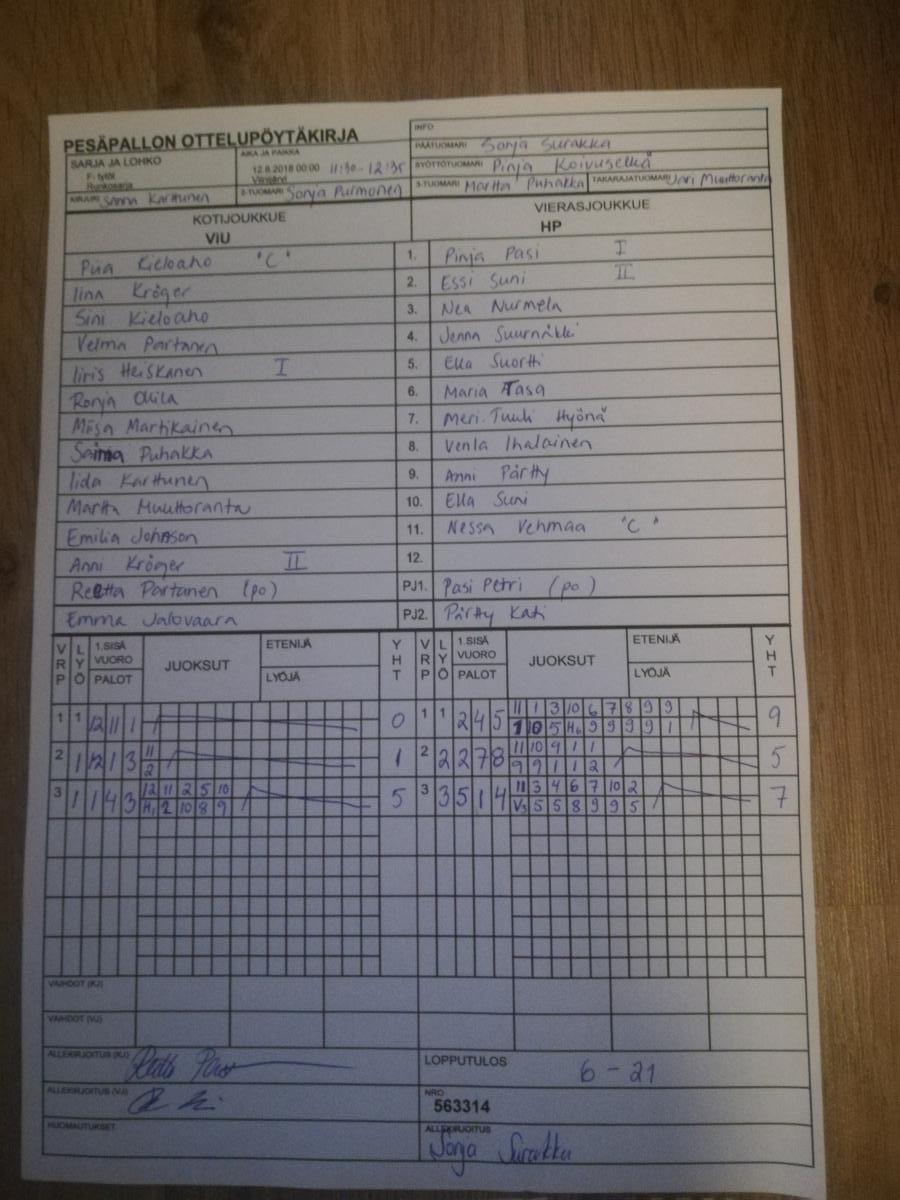 PESÄPALLON OTTELUPÖYTÄKIRJA
INFO
PÄÄTUOMARI Sonja Surakka
SARJA JA LOHKO
F- tytöt
Runkosarja
AIKA JA PAIKKA
12.8.2018 00:00 11:30 - 12:35
SYÖTTÖTUOMARI Pinja Koivuselkä
KIRJURI Sanna Karttunen
2-TUOMARI Sonja Purmonen
3-TUOMARI Martta Puhakka
TAKARAJATUOMARI Jari Muuttoranta
KOTIJOUKKUE
ViU
VIERASJOUKKUE
HP
Piia Kieloaho "C" 1. Pinja Pasi I
Iina Kröger 2. Essi Suni II
Sini Kieloaho 3. Nea Nurmela
Velma Partanen 4. Jenna Suurnäkki
Iiris Heiskanen I 5. Ella Suortti
Ronja Ollila 6. Maria Tasa
Miisa Martikainen 7. Meri-Tuuli Hyönä
Saimia Puhakka 8. Venla Ihalainen
Iida Karttunen 9. Anni Pärtty
Martta Muuttoranta 10. Ella Suni
Emilia Johnson 11. Nessa Vehmaa "C"
Anni Kröger II 12.
Reetta Partanen (po) PJ1. Pasi Petri (po)
Emma Jalovaara PJ2. Pärtty Kati
VRP LYÖ 1.SISÄ VUORO PALOT JUOKSUT ETENIJÄ LYÖJÄ YHT VRP LYÖ 1.SISÄ VUORO PALOT JUOKSUT ETENIJÄ LYÖJÄ YHT
1 1 12 11 1 0 1 1 2 4 5 11 1 3 10 6 7 8 9 9 9
1 10 5 H6 9 9 9 9 1
2 1 12 1 3 11 1 2 2 2 7 8 11 10 9 1 1 5
2 9 9 1 1 2
3 1 1 4 3 12 11 2 5 10 5 3 3 5 1 4 11 3 4 6 7 10 2 7
H1 2 10 8 9 V3 5 5 8 9 9 5
VAIHDOT (KJ)
VAIHDOT (VJ)
ALLEKIRJOITUS (KJ)
LOPPUTULOS 6 - 21
ALLEKIRJOITUS (VJ)
NRO
563314
HUOMAUTUKSET
ALLEKIRJOITUS
Sonja Surakka